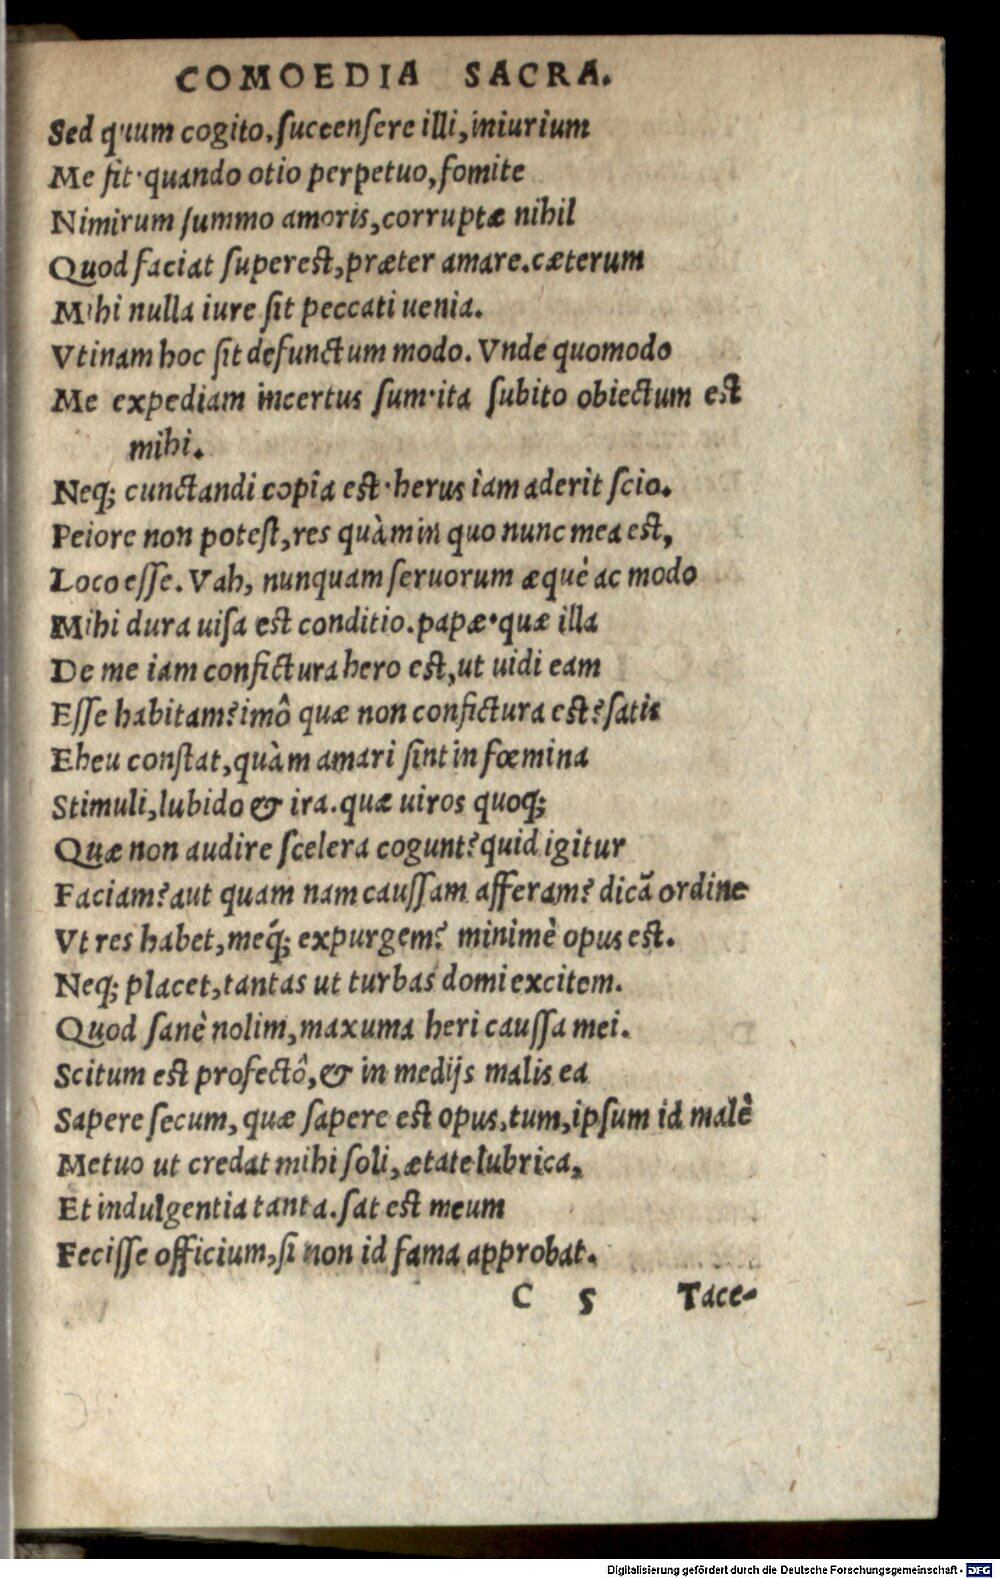 COMOEDIA SACRA.
Sed quum cogito, succensere illi, iniurium
Me sit·quando otio perpetuo, fomite
Nimirum summo amoris, corruptæ nihil
Quod faciat superest, præter amare. cæterum
Mihi nulla iure sit peccati uenia.
Vtinam hoc sit defunctum modo. Vnde quomodo
Me expediam incertus sum·ita subito obiectum est
mihi.
Neq; cunctandi copia est·herus iam aderit scio.
Peiore non potest, res quàm in quo nunc mea est,
Loco esse. Vah, nunquam seruorum æquè ac modo
Mihi dura uisa est conditio. papæ·quæ illa
De me iam confictura hero est, ut uidi eam
Esse habitam? imô quæ non confictura est? satis
Eheu constat, quàm amari sint in fœmina
Stimuli, lubido & ira. quæ uiros quoq;
Quæ non audire scelera cogunt? quid igitur
Faciam? aut quam nam caussam afferam? dicã ordine
Vt res habet, meq́; expurgem? minimè opus est.
Neq; placet, tantas ut turbas domi excitem.
Quod sanè nolim, maxuma heri caussa mei.
Scitum est profectô, & in medijs malis ea
Sapere secum, quæ sapere est opus, tum, ipsum id malè
Metuo ut credat mihi soli, ætate lubrica,
Et indulgentia tanta. sat est meum
Fecisse officium, si non id fama approbat.
C 5 Tace-
Digitalisierung gefördert durch die Deutsche Forschungsgemeinschaft - DFG